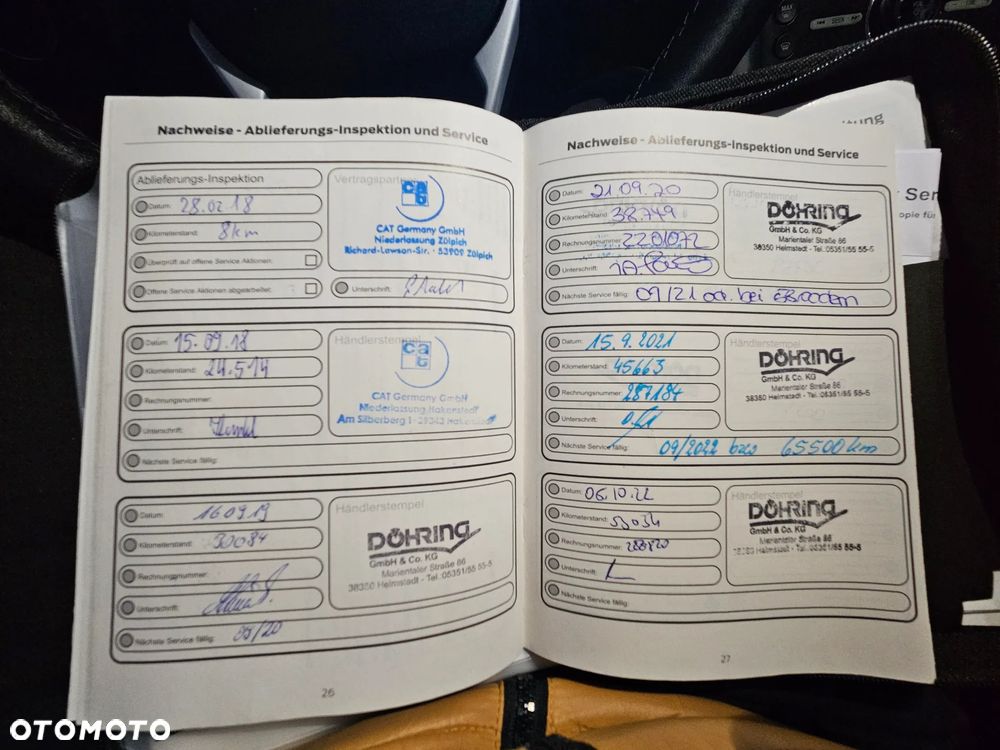 Nachweise - Ablieferungs-Inspektion und Service
Ablieferungs-Inspektion
Datum: 28.02.18
Kilometerstand: 8km
Überprüft auf offene Service Aktionen:
Offene Service Aktionen abgearbeitet:
Vertragspartner
cat
CAT Germany GmbH
Niederlassung Zülpich
Richard-Lawson-Str. · 53909 Zülpich
Unterschrift:
Datum: 15.09.18
Kilometerstand: 24.514
Rechnungsnummer:
Unterschrift:
Nächste Service fällig:
Händlerstempel
cat
CAT Germany GmbH
Niederlassung Hakenstedt
Am Silberberg 1
Datum: 16.09.19
Kilometerstand: 30084
Rechnungsnummer:
Unterschrift:
Nächste Service fällig: 09/20
Händlerstempel
DÖHRING
GmbH & Co. KG
Marientaler Straße 86
38350 Helmstedt - Tel. 05351/55 55-5
26
Nachweise - Ablieferungs-Inspektion und Service
Datum: 21.09.20
Kilometerstand: 38.749
Rechnungsnummer: 2201072
Unterschrift:
Nächste Service fällig: 09/21 od. bei
Händlerstempel
DÖHRING
GmbH & Co. KG
Marientaler Straße 86
38350 Helmstedt - Tel. 05351/55 55-5
Datum: 15.9.2021
Kilometerstand: 45663
Rechnungsnummer: 287184
Unterschrift:
Nächste Service fällig: 09/2022 bzw 65500km
Händlerstempel
DÖHRING
GmbH & Co. KG
Marientaler Straße 86
38350 Helmstedt - Tel. 05351/55 55-5
Datum: 06.10.22
Kilometerstand: 53034
Rechnungsnummer:
Unterschrift:
Nächste Service fällig:
Händlerstempel
DÖHRING
GmbH & Co. KG
Marientaler Straße 86
38350 Helmstedt - Tel. 05351/55 55-5
27
Ser
opie für
MAX
SEEK
OTOMOTO